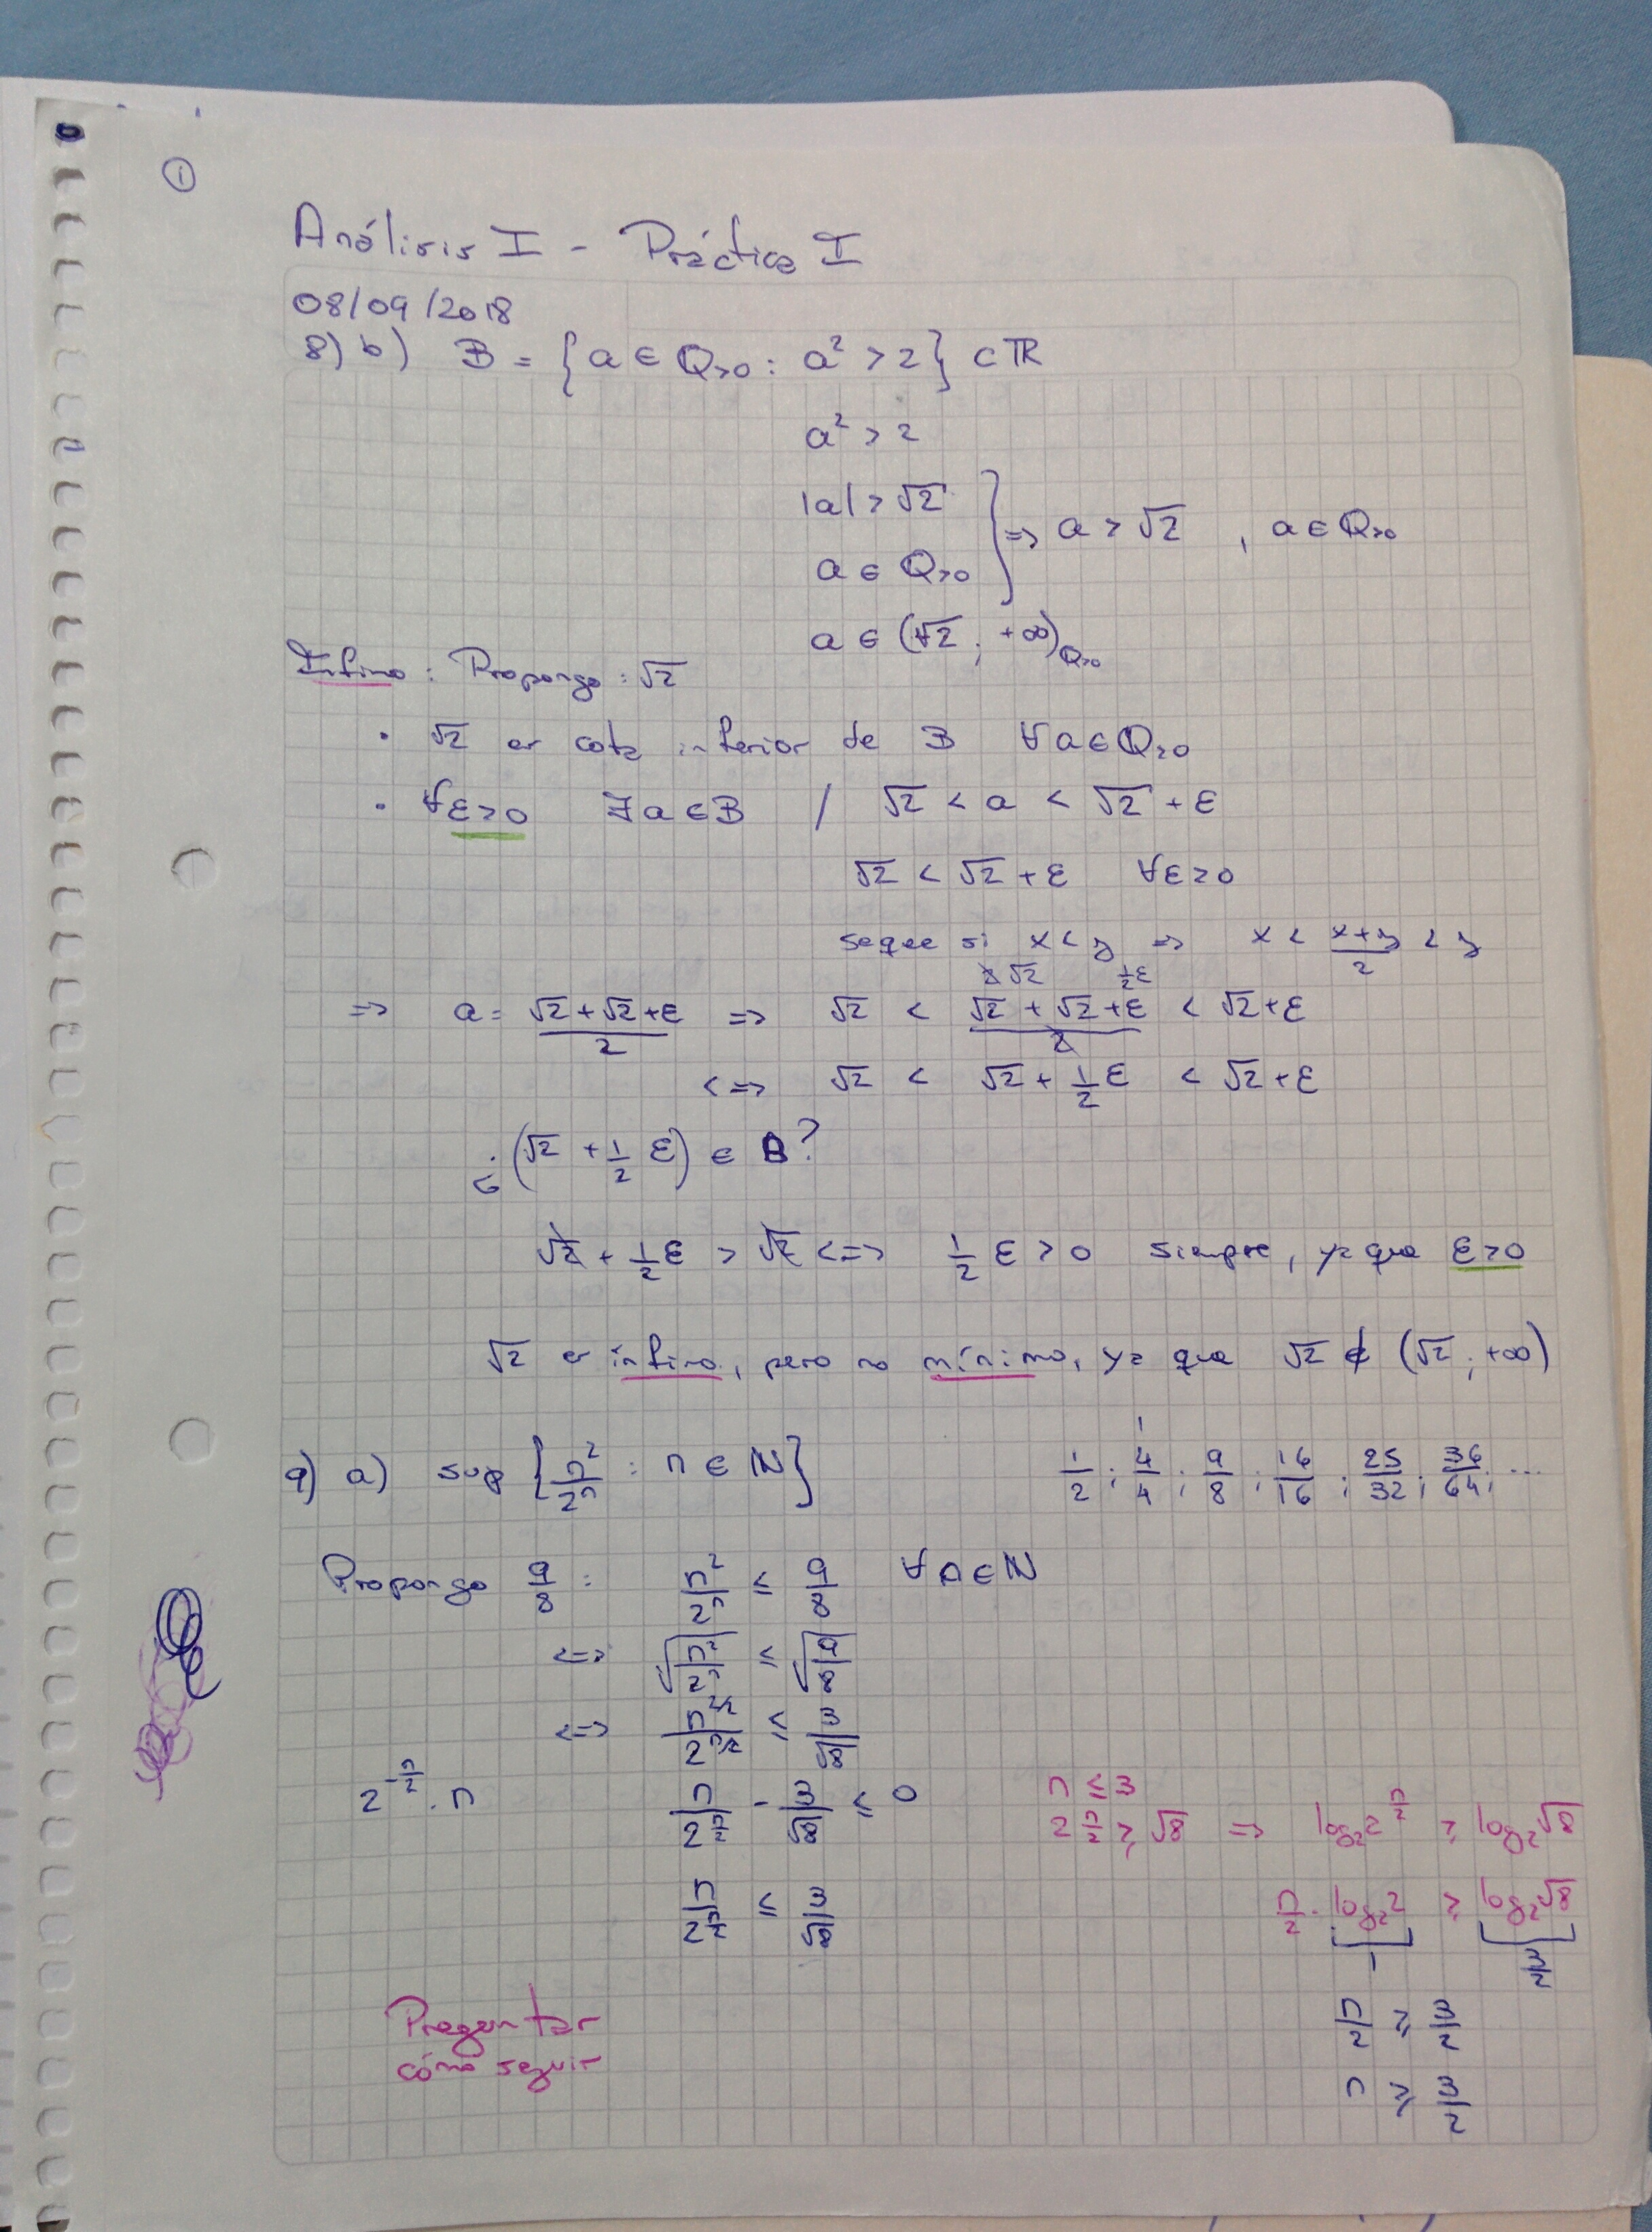 ①
Análisis I - Práctica I
08/09/2018
8) b) B = {a ∈ ℚ>0 : a² > 2} ⊂ ℝ
a² > 2
|a| > √2
a ∈ ℚ>0 } ⇒ a > √2 , a ∈ ℚ>0
a ∈ (√2 ; +∞)ℚ>0
Ínfimo : Propongo : √2
• √2 es cota inferior de B ∀a ∈ ℚ>0
• ∀ε>0 ∃a ∈ B / √2 < a < √2 + ε
√2 < √2 + ε ∀ε>0
se que si x < y ⇒ x < (x+y)/2 < y
2√2 ½ε
⇒ a = (√2+√2+ε)/2 ⇒ √2 < (√2+√2+ε)/2 < √2+ε
<=> √2 < √2 + 1/2 ε < √2+ε
¿(√2 + 1/2 ε) ∈ B?
√2 + 1/2 ε > √2 <=> 1/2 ε > 0 siempre, ya que ε>0
√2 es ínfimo, pero no mínimo, ya que √2 ∉ (√2 ; +∞)
9) a) sup {n²/2ⁿ : n ∈ ℕ} 1/2 ; 4/4 ; 9/8 ; 16/16 ; 25/32 ; 36/64 ; ...
1
Propongo 9/8 : n²/2ⁿ ≤ 9/8 ∀n ∈ ℕ
<=> √(n²/2ⁿ) ≤ √(9/8)
<=> n^(2/2)/2^(n/2) ≤ 3/√8
2^(-n/2) . n n/2^(n/2) - 3/√8 ≤ 0
n ≤ 3
2^(n/2) ≥ √8 ⇒ log₂2^(n/2) ≥ log₂√8
n/2^(n/2) ≤ 3/√8
n/2 . log₂2 ≥ log₂√8
1 3/2
n/2 ≥ 3/2
n ≥ 3/2
Preguntar
cómo seguir